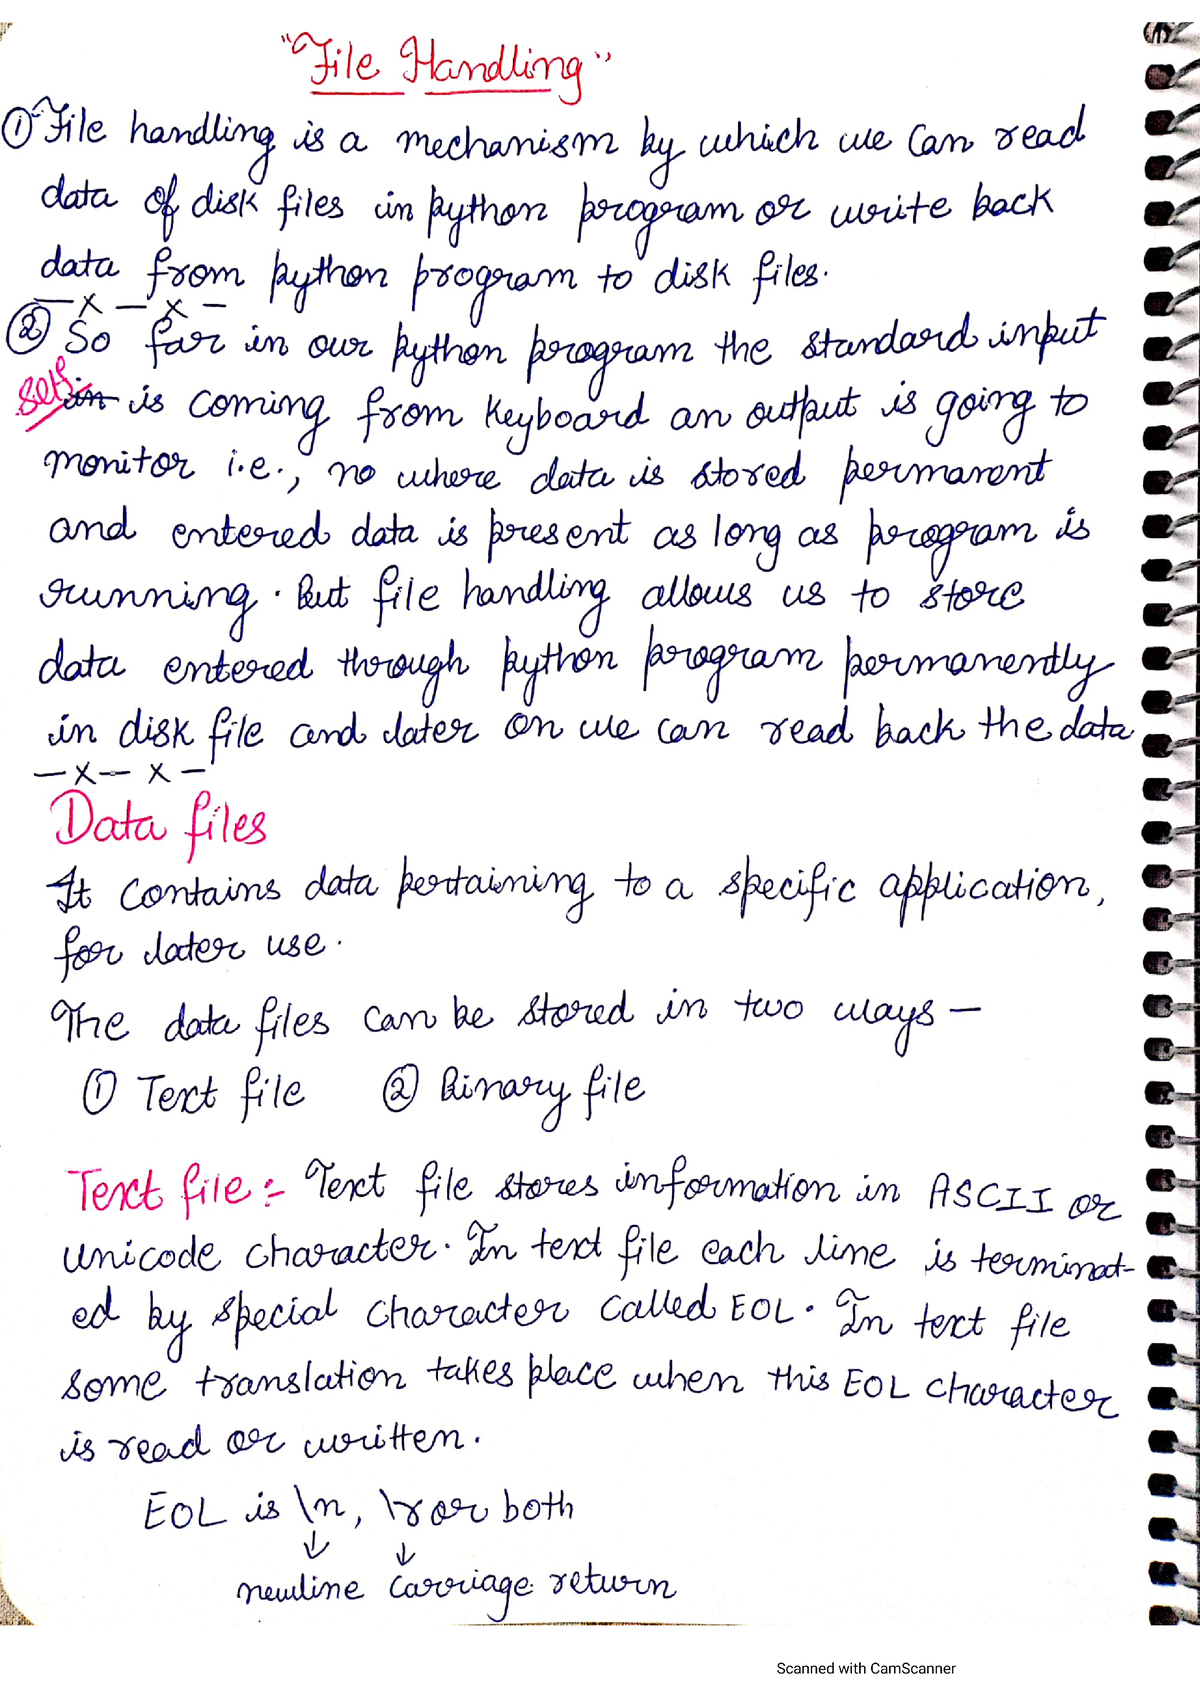 "File Handling"
① File handling is a mechanism by which we can read
data of disk files in python program or write back
data from python program to disk files.
— x — x —
② So far in our python program the standard input
in is coming from keyboard an output is going to
monitor i.e., no where data is stored permanent
and entered data is present as long as program is
running. But file handling allows us to store
data entered through python program permanently
in disk file and later on we can read back the data
— x — x —
Data files
It contains data pertaining to a specific application,
for later use.
The data files can be stored in two ways —
① Text file ② Binary file
Text file :- Text file stores information in ASCII or
unicode character. In text file each line is terminat-
ed by special character called EOL. In text file
some translation takes place when this EOL character
is read or written.
EOL is \n, \r or both
↓ ↓
newline carriage return
Scanned with CamScanner